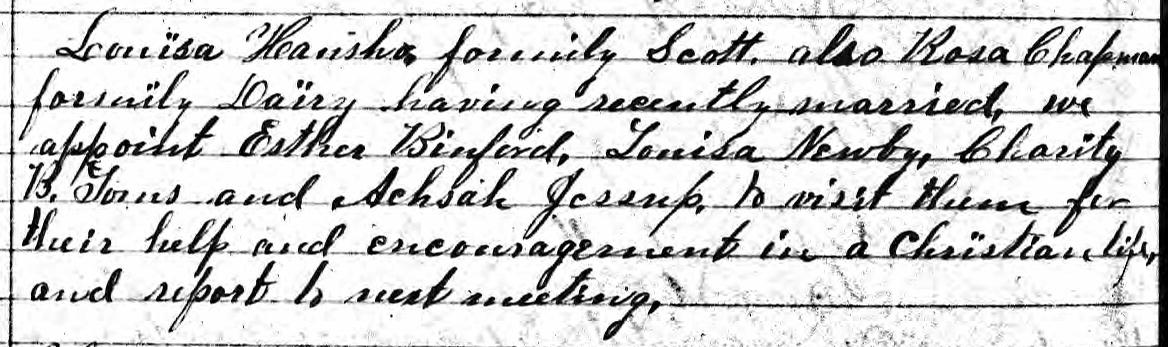 Louisa Hansho, formily Scott. also Rosa Chapman
formily Dairy having recently married, we
appoint Esther Binford, Louisa Newby, Charity
B. Toms and Achsah Jessup, to visit them for
their help and encouragement in a Christian life,
and report to next meeting.